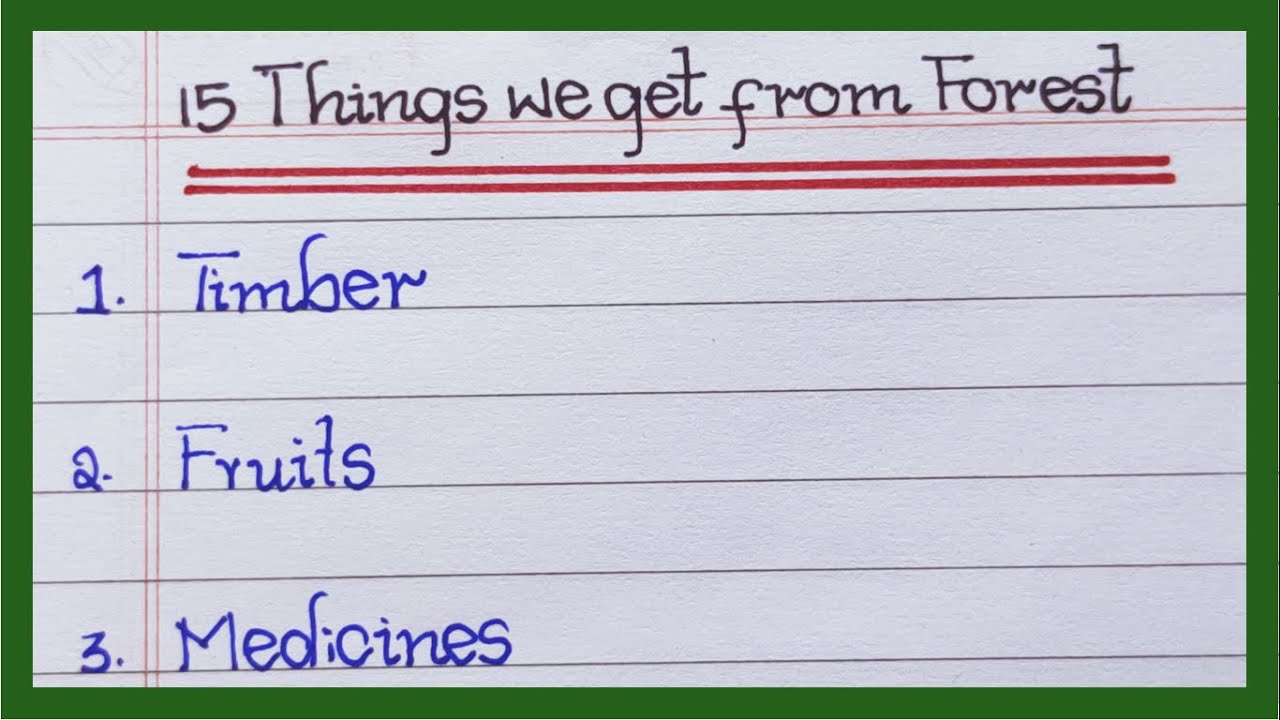 15 Things we get from Forest
1. Timber
2. Fruits
3. Medicines